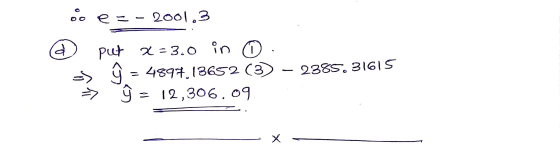 ∴ e = - 2001.3
(d) put x = 3.0 in ①.
⇒ ŷ = 4897.13652 (3) - 2385.31615
⇒ ŷ = 12,306.09
x